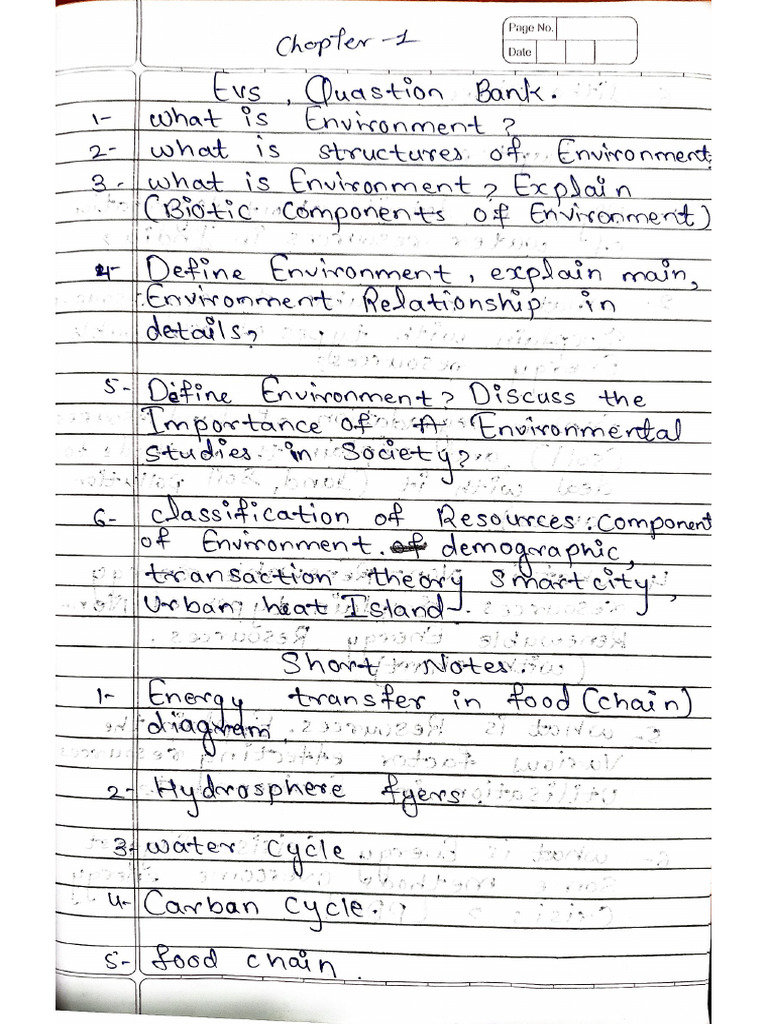 Chapter-1
Page No.
Date
Evs, Quastion Bank.
1- what is Environment?
2- what is structures of Environment.
3- what is Environment? Explain
(Biotic Components of Environment)
4- Define Environment, explain main,
Environment Relationship in
details?
5- Define Environment? Discuss the
Importance of A Environmental
studies in Society?
6- classification of Resources: component
of Environment. of demographic,
transaction theory smart city,
Urban heat Island.
Short Notes.
1- Energy transfer in food (chain)
diagram.
2- Hydrosphere fyers
3- water cycle
4- Carban cycle.
5- food chain.